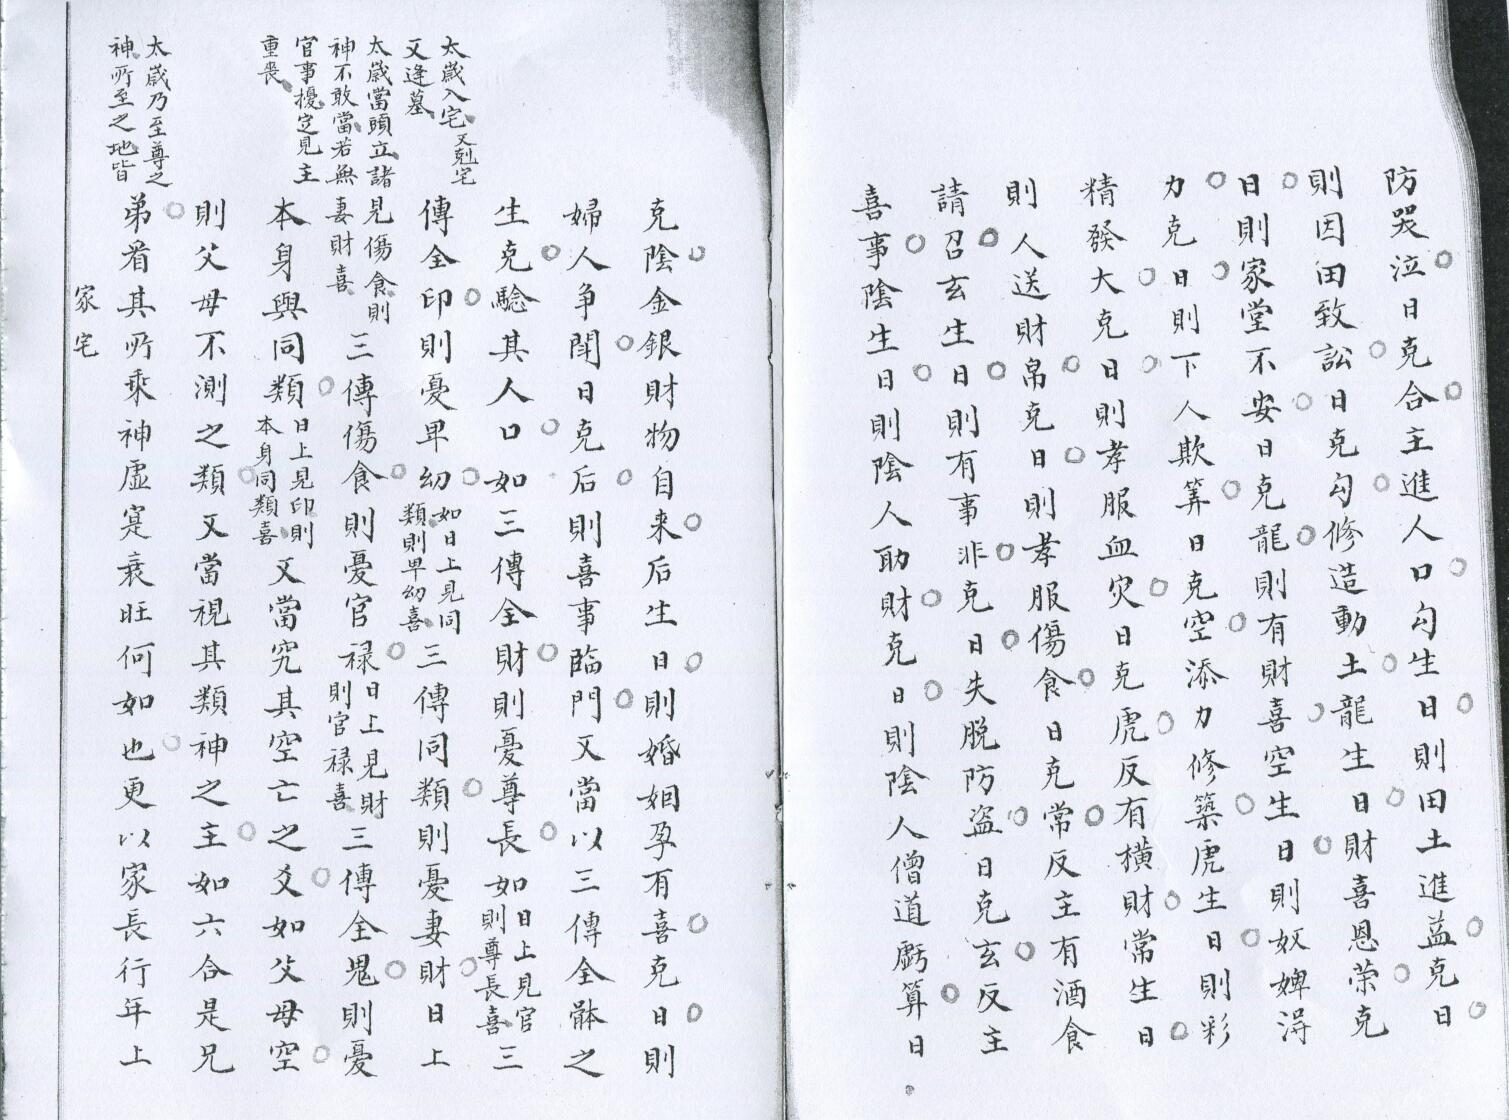 防哭泣日克合主進人口勾生日則田土進益克日
則因田致訟日克勾修造動土龍生日財喜恩荣克
日則家堂不安日克龍則有財喜空生日則奴婢淂
力克日則下人欺筭日克空添力修築虎生日則彩
精發大克日則孝服血灾日克虎反有横財常生日
則人送財帛克日則孝服傷食日克常反主有酒食
請召玄生日則有事非克日失脱防盗日克玄反主
喜事陰生日則陰人助財克日則陰人僧道虧算日
克陰金銀財物自来后生日則婚姻孕有喜克日則
婦人争鬧日克后則喜事臨門又當以三傳全骵之
生克驗其人口如三傳全財則憂尊長如日上見官則尊長喜三
傳全印則憂卑幼如日上見同類則卑幼喜三傳同類則憂妻財日上
見傷食則妻財喜三傳傷食則憂官禄日上見財則官禄喜三傳全鬼則憂
本身與同類日上見印則本身同類喜又當究其空亡之爻如父母空
則父母不測之類又當視其類神之主如六合是兄
弟看其所乘神虛寔衰旺何如也更以家長行年上
太歲入宅又剋宅
又逢墓
太歲當頭立諸
神不敢當若無
官事擾定見主
重喪
太歲乃至尊之
神所至之地皆
家宅